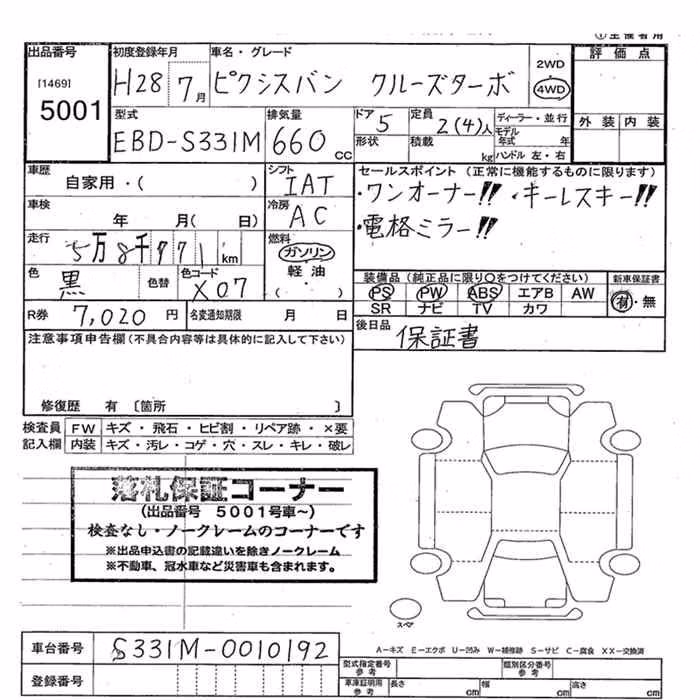 ①主催者用
出品番号 初度登録年月 車名・グレード 2WD 評価点
[1469] H28 7月 ピクシスバン クルーズターボ 4WD
5001 型式 排気量 ドア 定員 ディーラー・並行 外装 内装
EBD-S331M 660cc 5 2(4)人 モデル年式 年
形状 積載 kg ハンドル 左・右
車歴 シフト セールスポイント (正常に機能するものに限ります)
自家用・( ) IAT ・ワンオーナー!! ・キーレスキー!!
車検 年 月( 日) 冷房 AC ・電格ミラー!!
走行 5万8千971km 燃料 ガソリン
軽油
( )
色 黒 色替 色コード X07 装備品 (純正品に限り○をつけてください) 新車保証書
PS PW ABS エアB AW 有・無
SR ナビ TV カワ
R券 7,020円 名変通知期限 月 日 後日品 保証書
注意事項申告欄(不具合内容等は具体的に記入して下さい)
修復歴 有 〔箇所 〕
検査員 FW キズ・飛石・ヒビ割・リペア跡・×要
記入欄 内装 キズ・汚レ・コゲ・穴・スレ・キレ・破レ
落札保証コーナー
(出品番号 5001号車~)
検査なし・ノークレームのコーナーです
※出品申込書の記載違いを除きノークレーム
※不動車、冠水車など災害車も含まれます。
スペア
車台番号 S331M-0010192 A-キズ E-エクボ U-凹み W-補修跡 S-サビ C-腐食 XX-交換済
型式指定番号 参考 類別区分番号 参考
登録番号 車庫証明用 参考 長さ cm 幅 cm 高さ cm